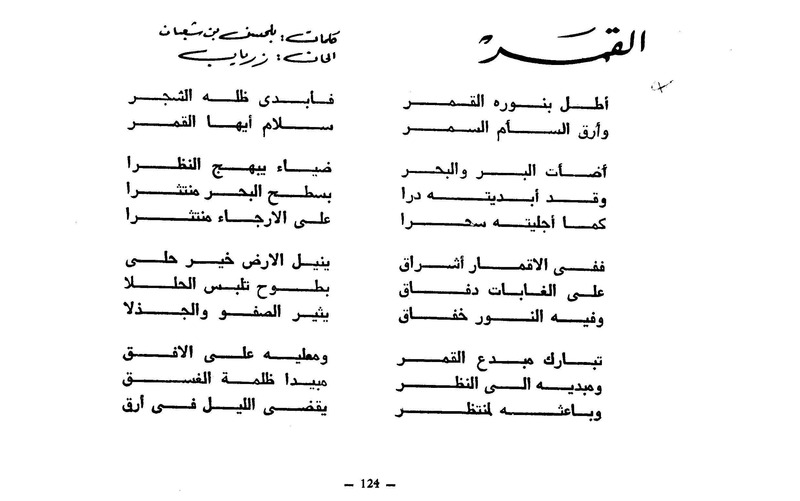 القمر
كلمات: بلحسن بن شعبان
الحان: زرياب
أطل بنوره القمر فأبدى ظله الشجر
وأرق السأم السمر سلام أيها القمر
أضأت البر والبحر ضياء يبهج النظرا
وقد أبديته درا بسطح البحر منتثرا
كما أجليته سحرا على الارجاء منتثرا
ففى الاقمار أشراق ينيل الارض خير حلى
على الغابات دفاق بطوح تلبس الحللا
وفيه النور خفاق يثير الصفو والجذلا
تبارك مبدع القمر ومعليه على الافق
ومبديه الى النظر مبيدا ظلمة الغسق
وباعثه لمنتظر يقضى الليل فى أرق
– 124 –